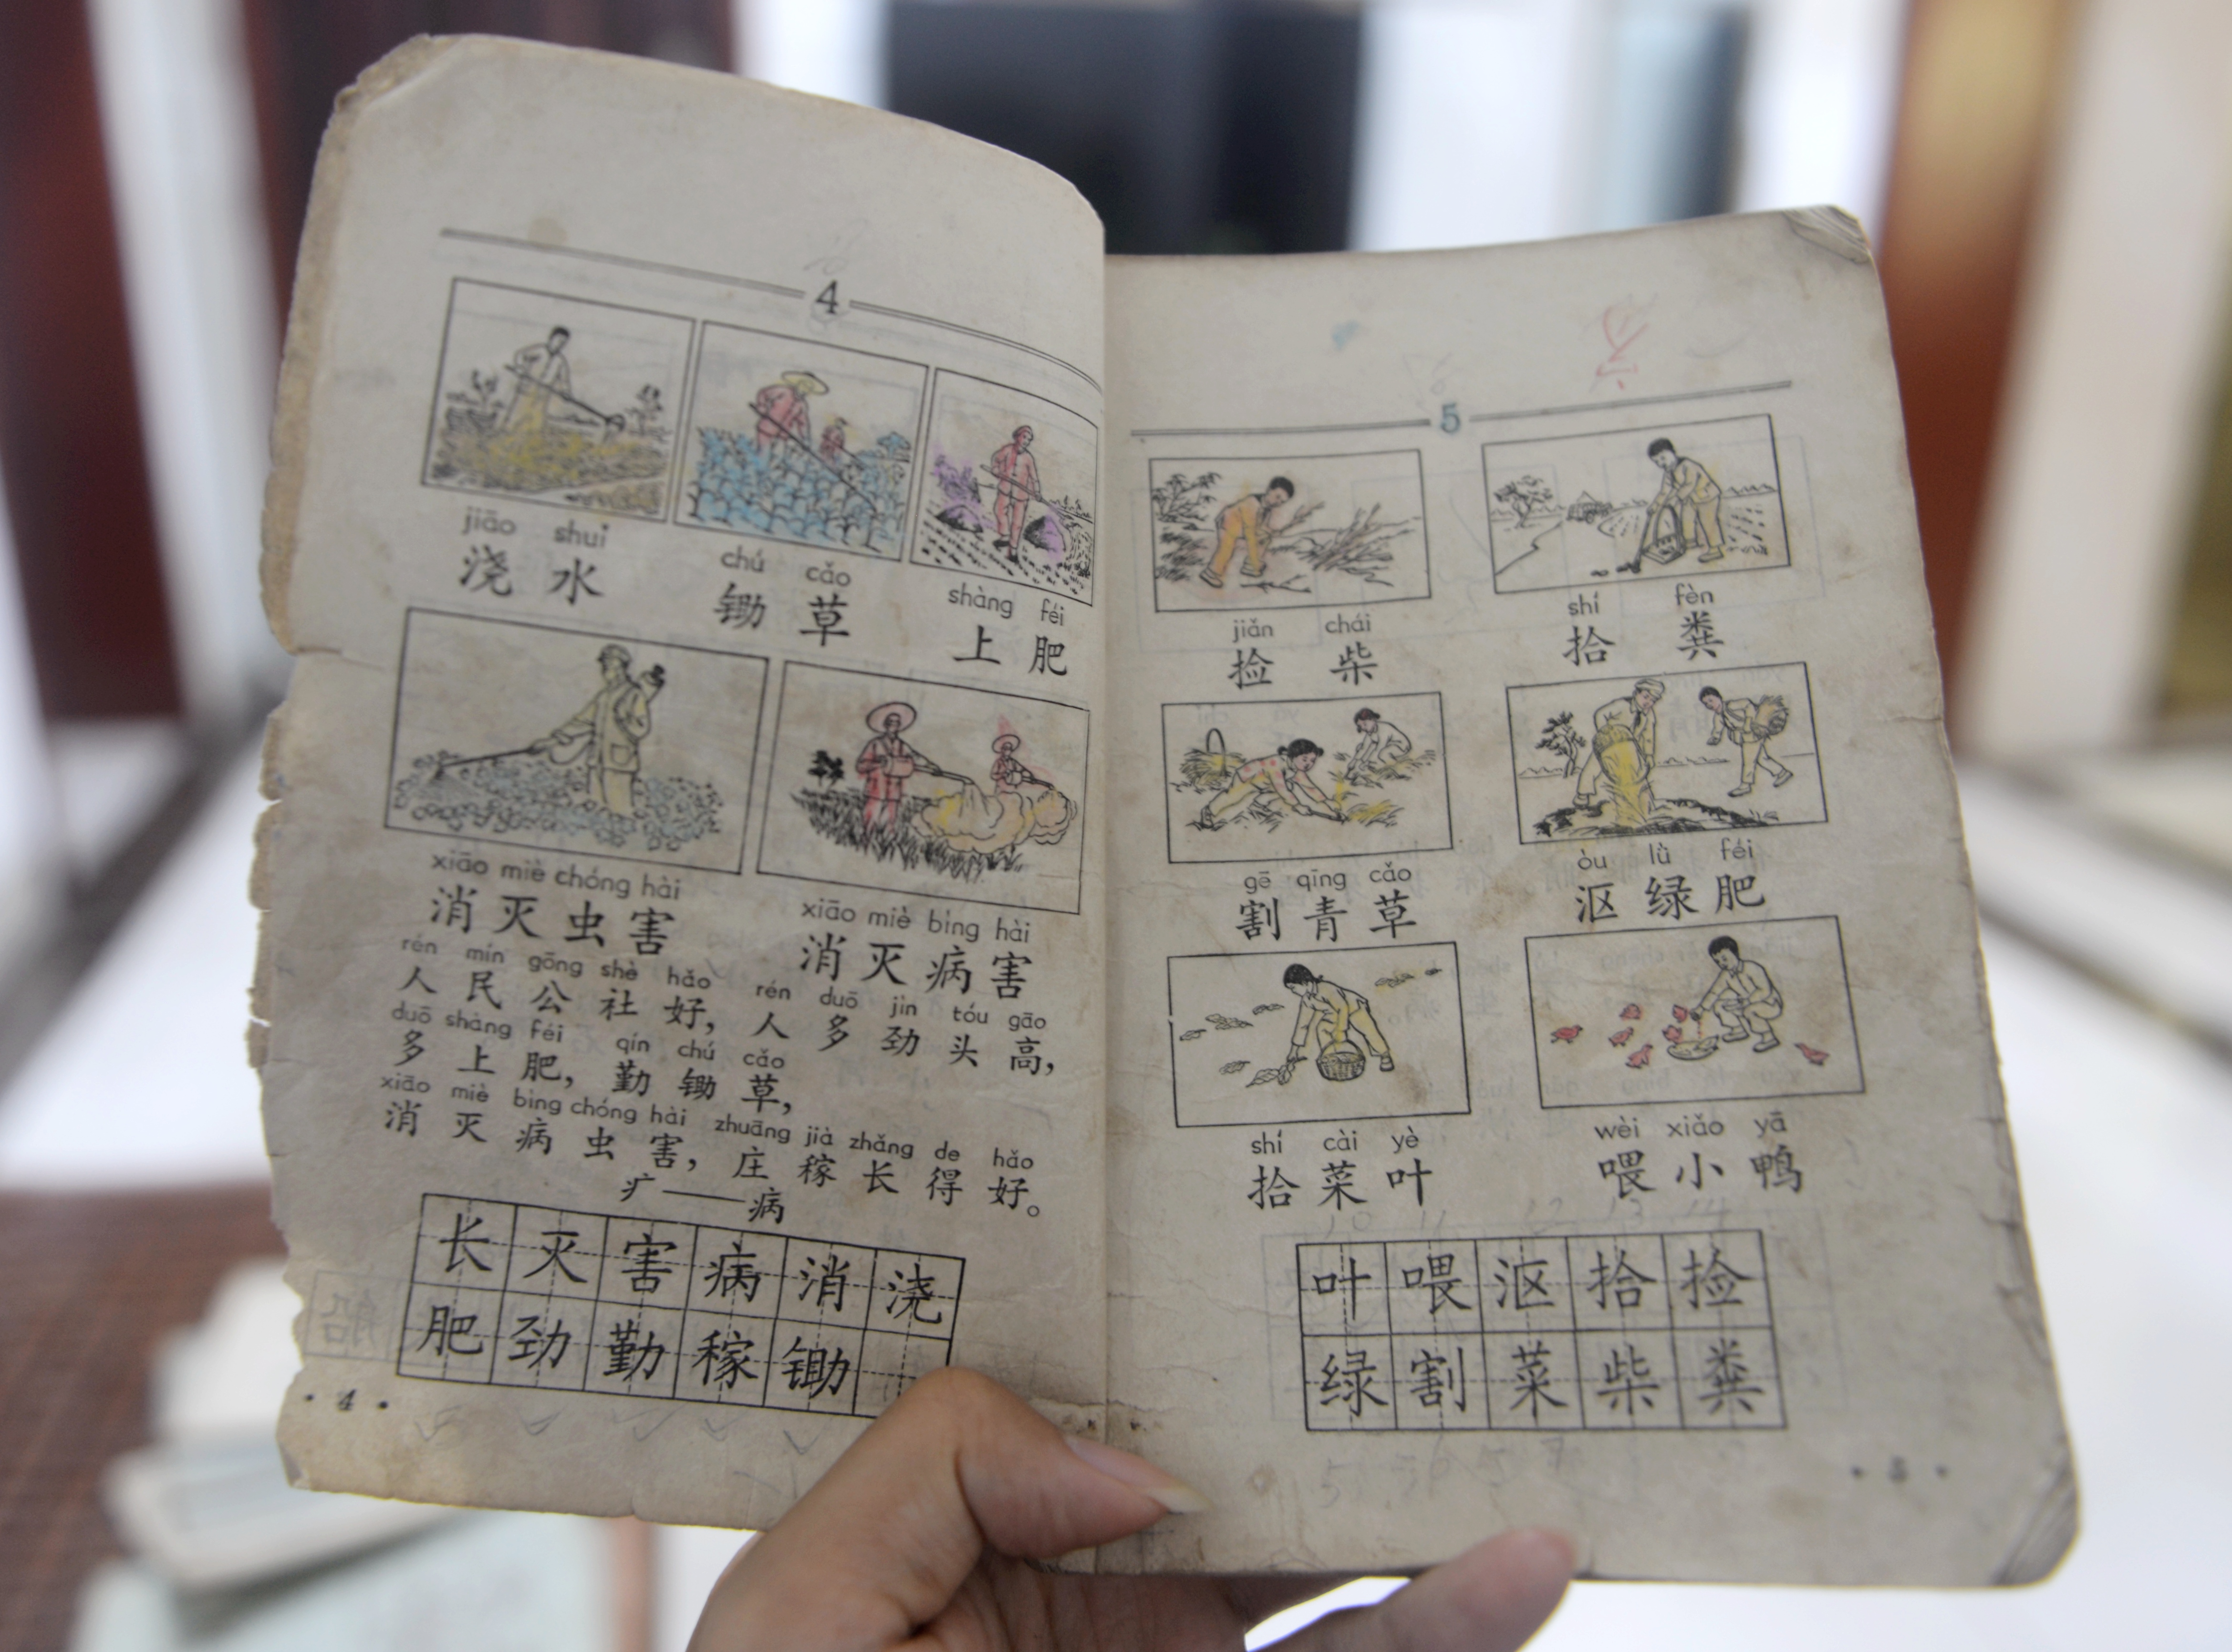 4
jiāo shuǐ
浇 水
chú cǎo
锄 草
shàng féi
上 肥
xiāo miè chóng hài
消 灭 虫 害
xiāo miè bìng hài
消 灭 病 害
rén mín gōng shè hǎo rén duō jìn tóu gāo
人 民 公 社 好，人 多 劲 头 高，
duō shàng féi qín chú cǎo
多 上 肥，勤 锄 草，
xiāo miè bìng chóng hài zhuāng jià zhǎng de hǎo
消 灭 病 虫 害，庄 稼 长 得 好。
疒——病
长 灭 害 病 消 浇
肥 劲 勤 稼 锄
• 4 •
5
jiǎn chái
捡 柴
shí fèn
拾 粪
gē qīng cǎo
割 青 草
òu lǜ féi
沤 绿 肥
shí cài yè
拾 菜 叶
wèi xiǎo yā
喂 小 鸭
10 11 12 13 14
叶 喂 沤 拾 捡
绿 割 菜 柴 粪
• 5 •